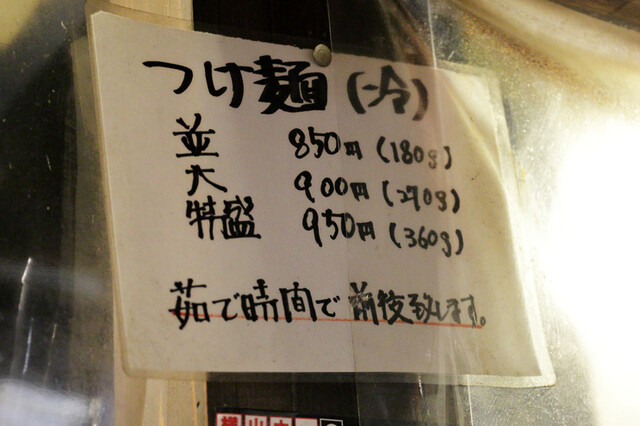 つけ麺(冷)
並 850円(180g)
大 900円(270g)
特盛 950円(360g)
茹で時間で前後致します。